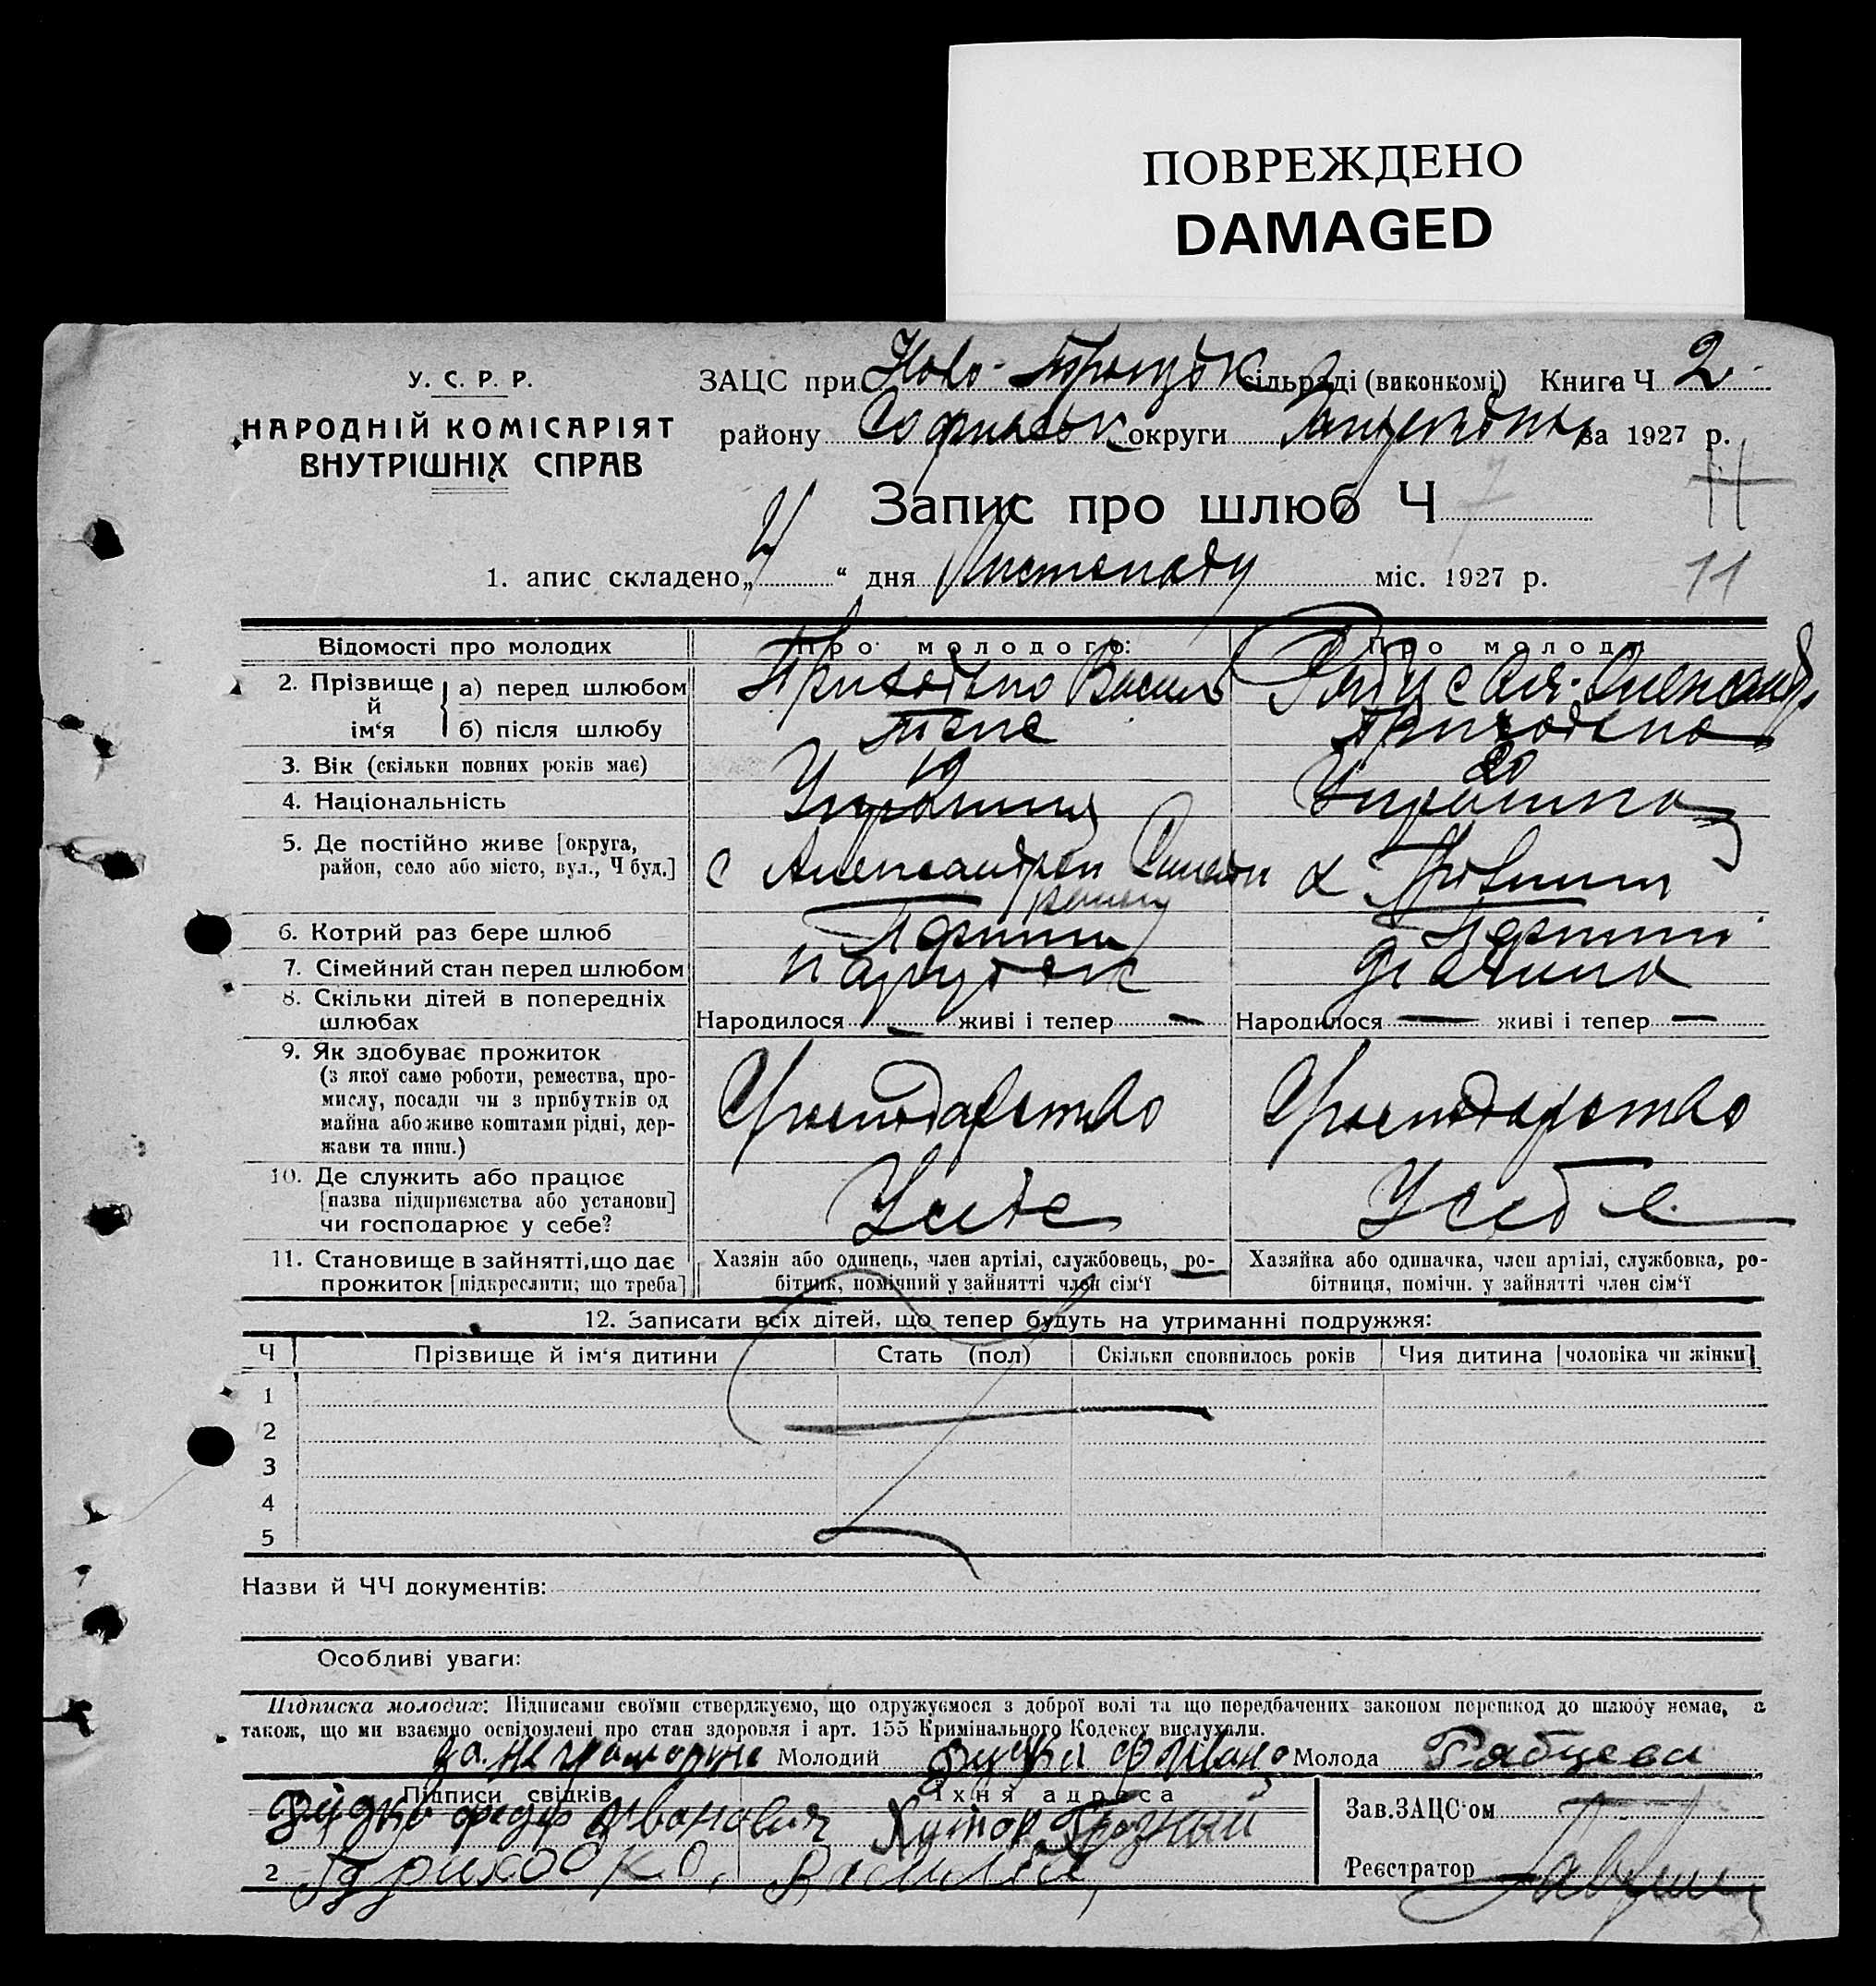 ПОВРЕЖДЕНО
DAMAGED
У. С. Р. Р.
НАРОДНІЙ КОМІСАРІЯТ
ВНУТРІШНІХ СПРАВ
ЗАЦС при Ново- сільраді (виконкомі) Книга Ч 2
району округи за 1927 р.
Запис про шлюб Ч 7
11
1. апис складено „ “ дня Листопаду міс. 1927 р.
11
Відомості про молодих Про молодого: Про молоду:
2. Прізвище й ім‘я а) перед шлюбом Приходько Василь
б) після шлюбу Теж Приходько
3. Вік (скільки повних років має) 19 20
4. Національність Українець Українка
5. Де постійно живе [округа, район, село або місто, вул., Ч буд.] с х
6. Котрий раз бере шлюб Перший Перший
7. Сімейний стан перед шлюбом парубок дівчина
8. Скільки дітей в попередніх шлюбах Народилося — живі і тепер — Народилося — живі і тепер —
9. Як здобуває прожиток Господарство Господарство
(з якої саме роботи, ремества, про-
мислу, посади чи з прибутків од
майна або живе коштами рідні, дер-
жави та инш.)
10. Де служить або працює
[назва підприємства або установи]
чи господарює у себе? У себе У себе
11. Становище в зайнятті, що дає прожиток [підкреслити; що треба]
Хазяін або одинець, член артілі, службовець, ро-
бітник, помічний у зайнятті член сім‘ї
Хазяйка або одиначка, член артілі, службовка, ро-
бітниця, помічн. у зайнятті член сім‘ї
12. Записати всіх дітей, що тепер будуть на утриманні подружжя:
Ч Прізвище й ім‘я дитини Стать (пол) Скільки сповнилось років Чия дитина [чоловіка чи жінки]
1
2
3
4
5
Назви й ЧЧ документів:
Особливі уваги:
Підписка молодих: Підписами своїми стверджуємо, що одружуємося з доброї волі та що передбачених законом перешкод до шлюбу немає, а
також, що ми взаємно освідомлені про стан здоровля і арт. 155 Кримінального Кодексу вислухали.
за Молодий Молода Рябцева
Підписи свідків Їхня адреса
федір Иванович Хутор Грозный
2 Приходко, Василий,
Зав. ЗАЦС‘ом
Реєстратор